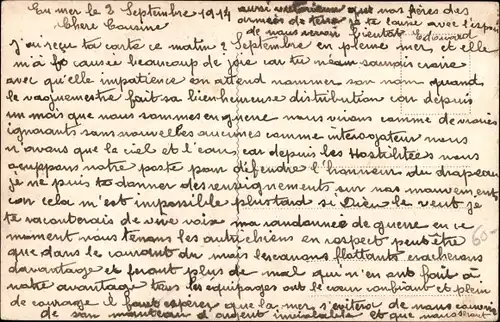 En mer le 2 Septembre 1914
Chere Cousine
J'ai reçu ta carte ce matin 2 Septembre en pleine mer et elle
m'a causée beaucoup de joie car tu ne saurais croire
avec qu'elle impatience on attend nommer son nom quand
le vaguemestre fait sa bienheureuse distribution car depuis
un mois que nous sommes en guerre nous vivons comme de
ignorants sans nouvelles aucunes comme interrogateur nous
n'avons que le ciel et l'eau, car depuis les Hostilitées nous
occuppons notre poste pour difendre l'honneur du drapeau
je ne puis te donner des renseignements sur nos mouvements
cela m'est impossible plus tard si Dieu le veut je
te raconterais de vive voix ma randonnée de guerre en ce
moment nous tenons les autruchiens en respect peut être
que dans le courant du mois les canons flottants cracherons
davantage et feront plus de mal qu'n'en ont fait à
notre avantage tous les équipages ont le cœur confiant et plein
de courage il faut espérer que la mer s'evitera de nous couvrir
de son manteau d'argent invincible et que nous serons
aussi victorieux que nos fères des
armées de terre je te cause avec l'espoir
de nous revoir bientot Edouard
60-